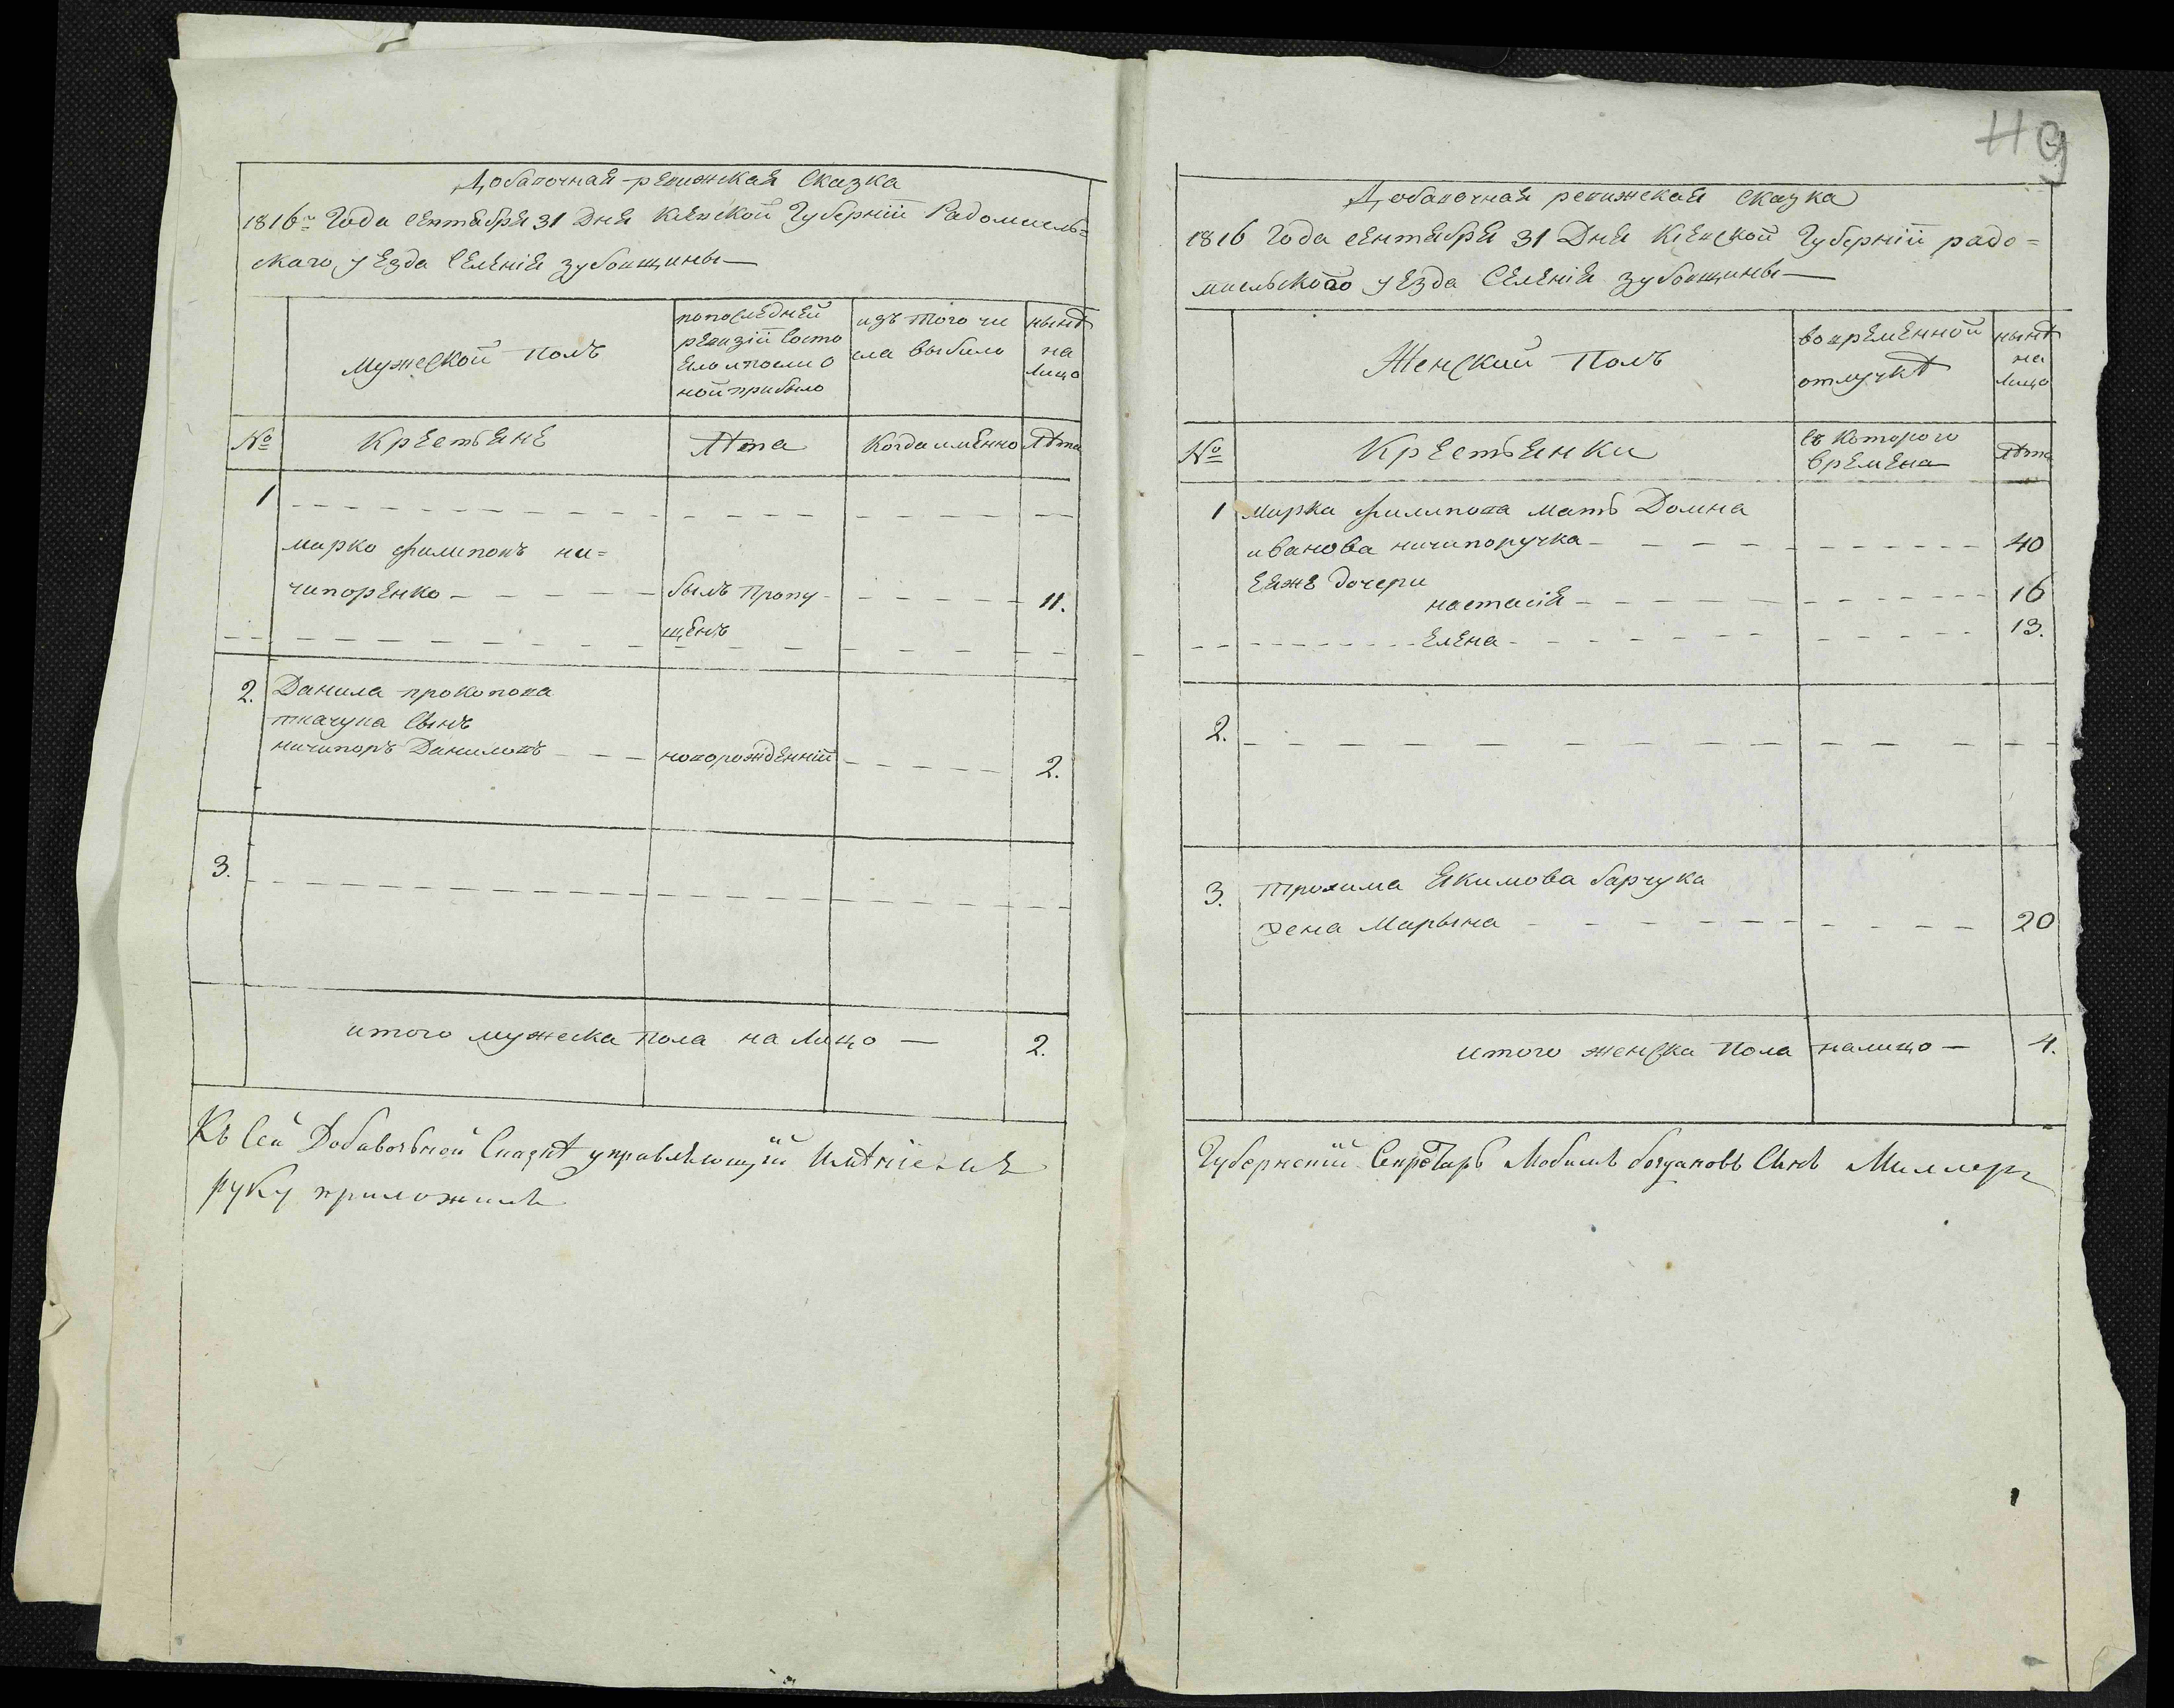 Добавочная ревижская сказка
1816го Года сентября 31 Дня Кіевской Губерніи Радомисль=
скаго уезда Селенія зубовщины
мужеской полъ
попоследней
ревизіи состо
яло и после о
ной прибыло
изъ того чи
сла выбило
нынѣ
на
лицо
№
Крестьяне
Лѣта
Когда именно
Лѣта
1
марко филиповъ ни=
чипоренко
былъ пропу
щенъ
11.
2.
Данила прокопова
ткачука сынъ
ничипоръ Даниловъ
новорожденній
2.
3.
итого мужеска пола на лицо — 2.
Къ сей Добавочьной Сказкѣ управляющій Имѣніемъ
руку приложилъ
119
Добавочная ревижская сказка
1816 Года сентября 31 Дня Кіевской Губерніи радо=
мисльского уезда Селенія зубовщины
Женский Полъ
во временной
отлучкѣ
нынѣ
на
лицо
№
Крестьянки
съ которого
времена
Лѣта
1 марка филипова мать Домна
иванова ничипоручка 40
еяже дочери
настасія 16
елена 13.
2.
3. трохима Якимова барчука
жена Марына 20
итого женска пола налицо — 4.
Губернскій Секретарь Богдановъ Сынъ Миллеръ